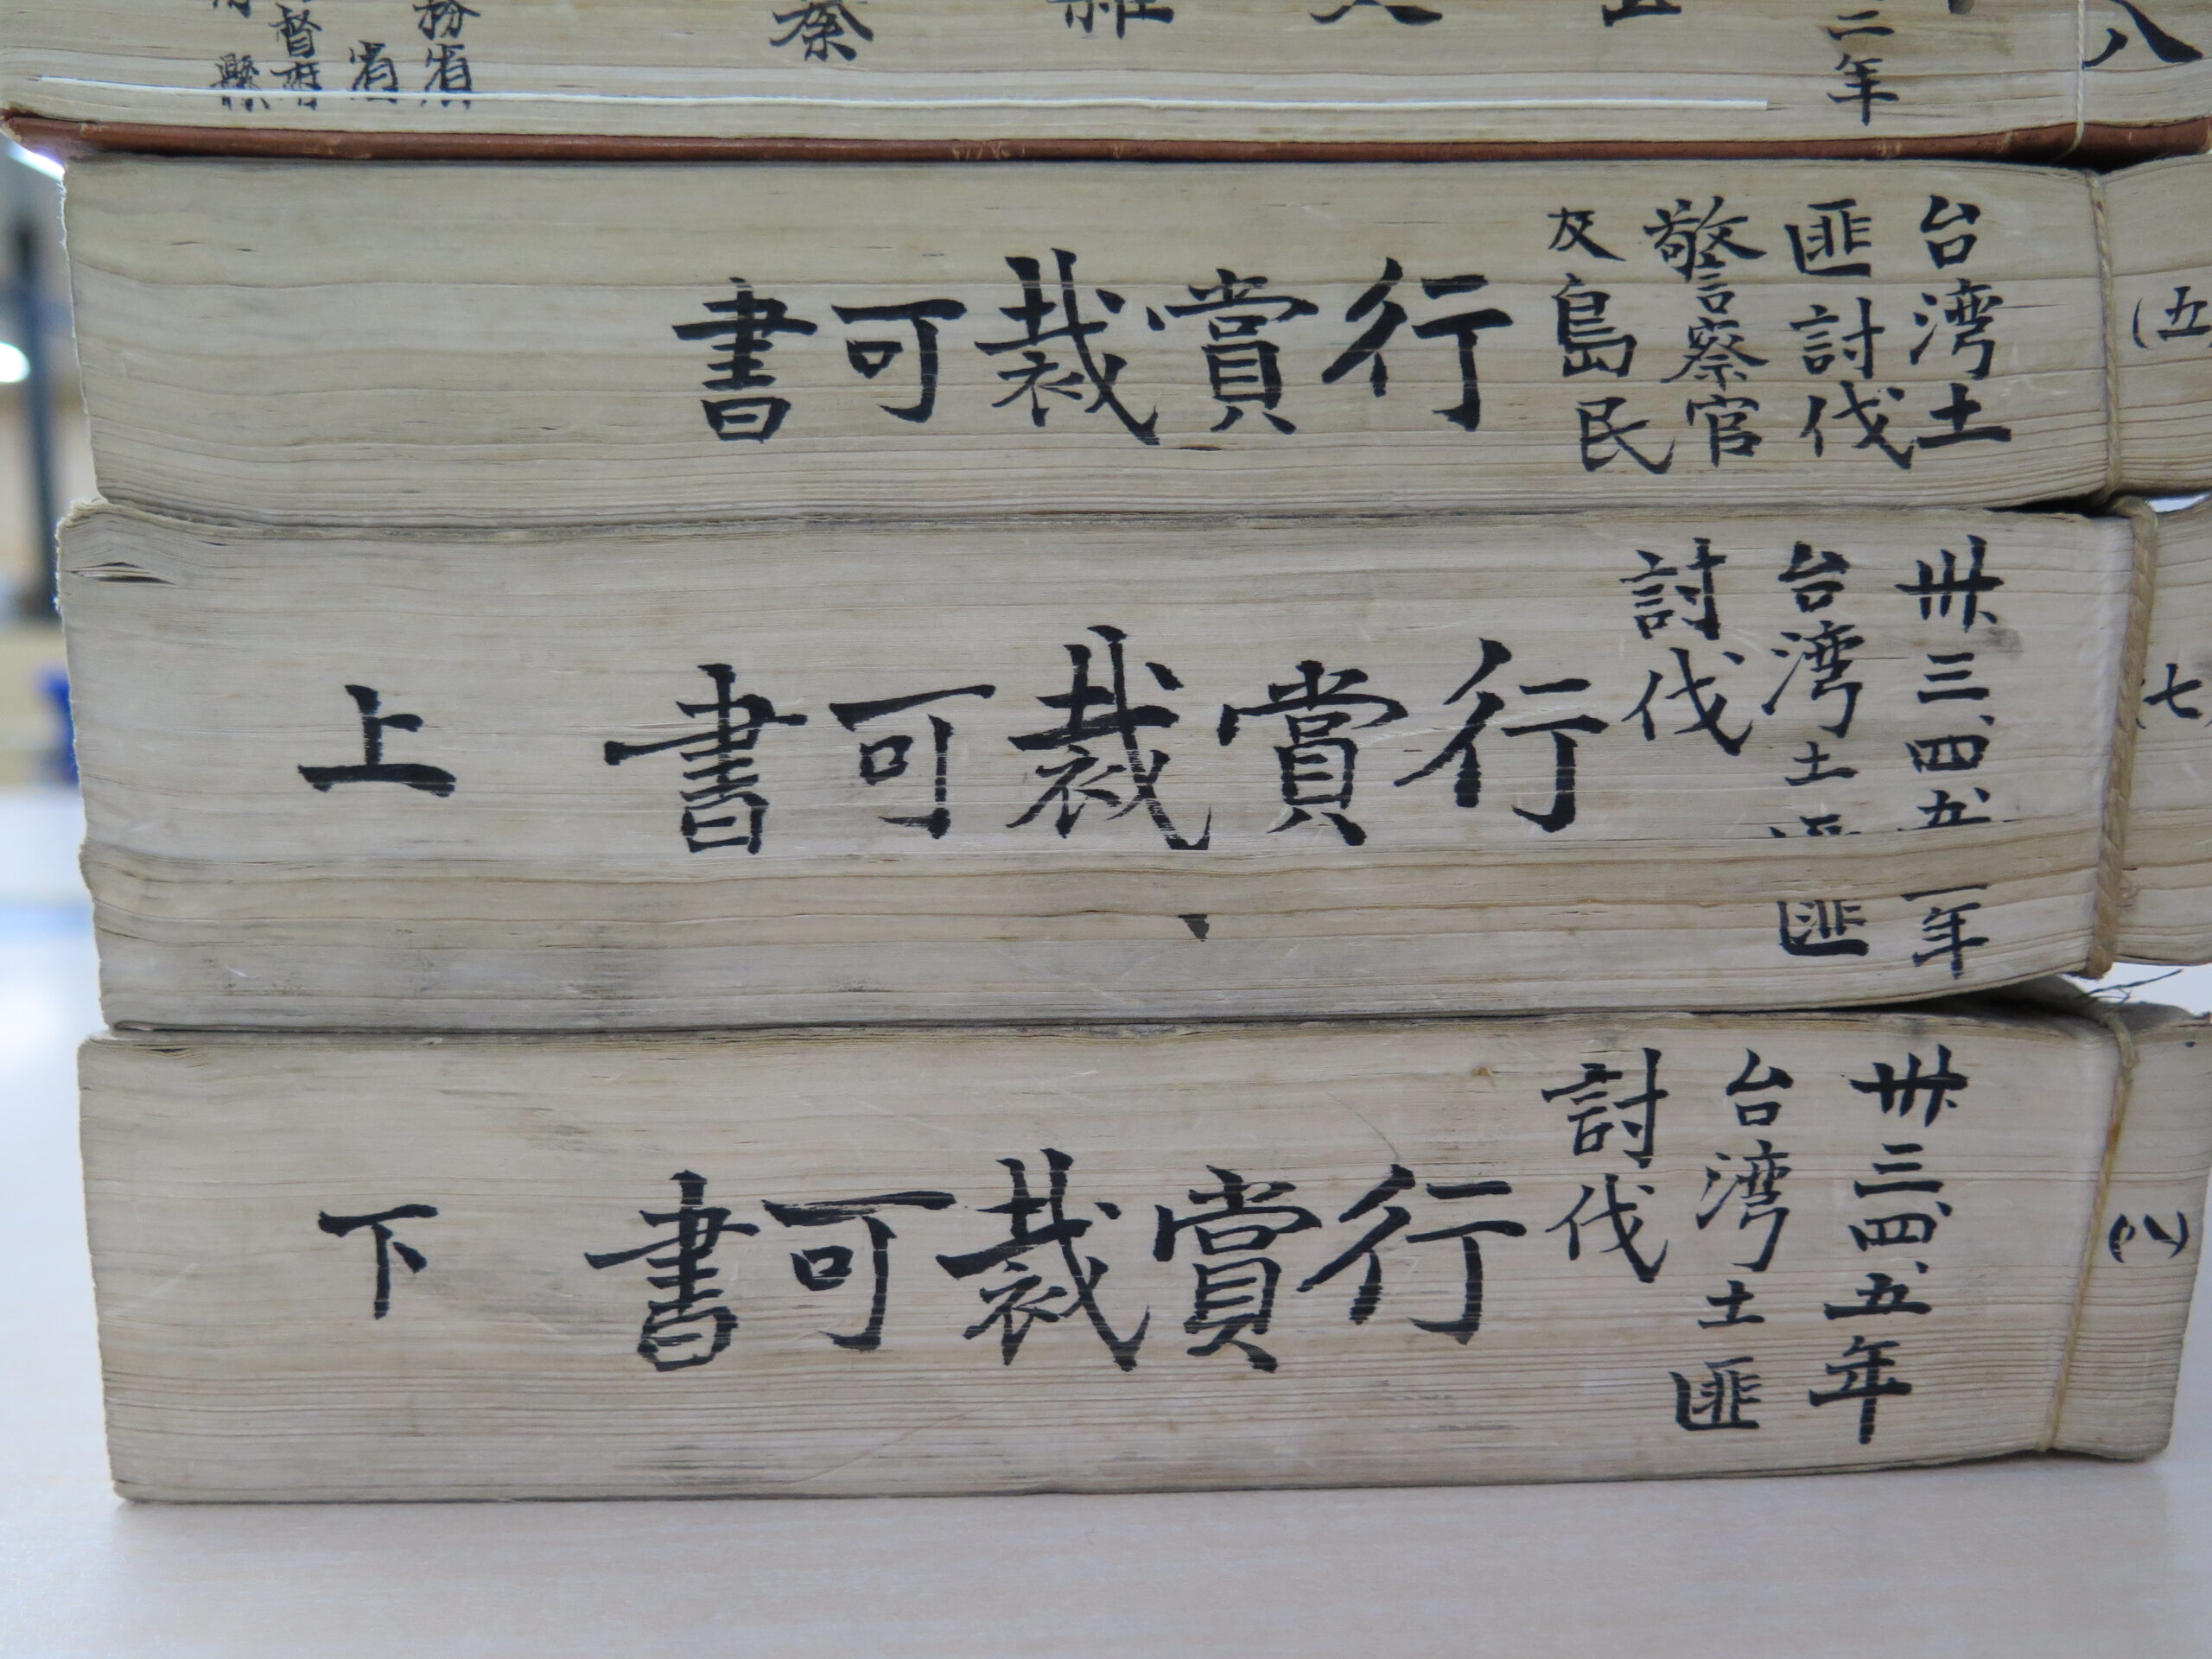 八
二年
務省
省
督府
縣
(五)
台湾土
匪討伐
警察官
及島民
行賞裁可書
(七)
卅三、四、五年
台湾土匪
討伐
行賞裁可書
上
(八)
卅三、四、五年
台湾土匪
討伐
行賞裁可書
下